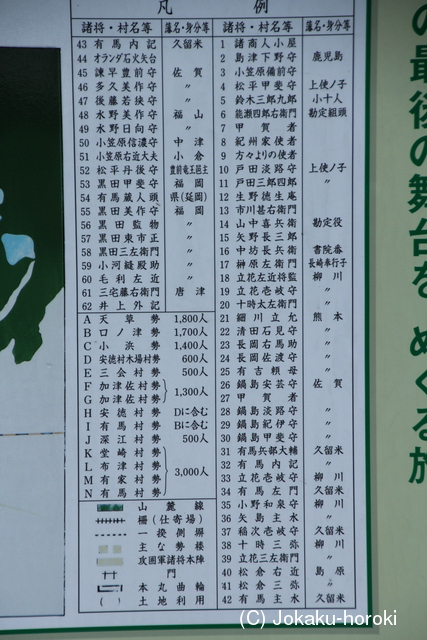 凡例
諸将・村名等 藩名・身分等
1 諸商人小屋
2 島津下野守 鹿児島
3 小笠原備前守
4 松平甲斐守 上使ノ子
5 鈴木三郎九郎 小十人
6 能瀬四郎右衛門 勘定組頭
7 甲賀者
8 紀州家使者
9 方々よりの使者
10 戸田淡路守 上使ノ子
11 戸田三郎四郎 〃
12 生野徳生庵
13 市川甚右衛門
14 山中喜兵衛 勘定役
15 矢野長三郎
16 中坊長兵衛 書院番
17 榊原左衛門 長崎奉行子
18 立花左近将監 柳川
19 立花壱岐守 〃
20 十時太左衛門 〃
21 細川立允 熊本
22 清田石見守 〃
23 長岡右馬助 〃
24 長岡佐渡守 〃
25 有吉頼母 〃
26 鍋島安芸守 佐賀
27 甲賀者
28 鍋島淡路守 〃
29 鍋島紀伊守 〃
30 鍋島甲斐守 〃
31 有馬兵部大輔 久留米
32 有馬内記 〃
33 立花壱岐守 柳川
34 有馬左門 久留米
35 小野和泉守 柳川
36 矢島主水 〃
37 稲次壱岐守 久留米
38 十時三弥 柳川
39 立花三左衛門 〃
40 松倉右近 島原
41 松倉三弥 〃
42 有馬主水 久留米
諸将・村名等 藩名・身分等
43 有馬内記 久留米
44 オランダ石火矢台
45 諫早豊前守 佐賀
46 多久美作守 〃
47 後藤若狭守 〃
48 水野美作守 福山
49 水野日向守 〃
50 小笠原信濃守 中津
51 小笠原右近大夫 小倉
52 松平丹後守 豊前竜王邑主
53 黒田甲斐守 福岡
54 有馬蔵人頭 県(延岡)
55 黒田美作守 福岡
56 黒田監物 〃
57 黒田東市正 〃
58 黒田三左衛門 〃
59 小河縫殿助 〃
60 毛利左近 〃
61 三宅藤右衛門 唐津
62 井上外記
A 天草勢 1,800人
B 口ノ津勢 1,700人
C 小浜勢 1,400人
D 安徳村木場村勢 600人
E 三会村勢 500人
F 加津佐村勢
G 加津佐村勢 1,300人
H 安徳村勢 Dに含む
I 有馬村勢 Bに含む
J 深江村勢 500人
K 堂崎村勢
L 布津村勢
M 有家村勢 3,000人
N 有馬村勢
山麓線
柵(仕寄場)
一揆側塀
主な勢楼
攻囲軍諸将本陣
門
本丸曲輪
( ) 土地利用
の最後の舞台を めぐる旅
(C) Jokaku-horoki